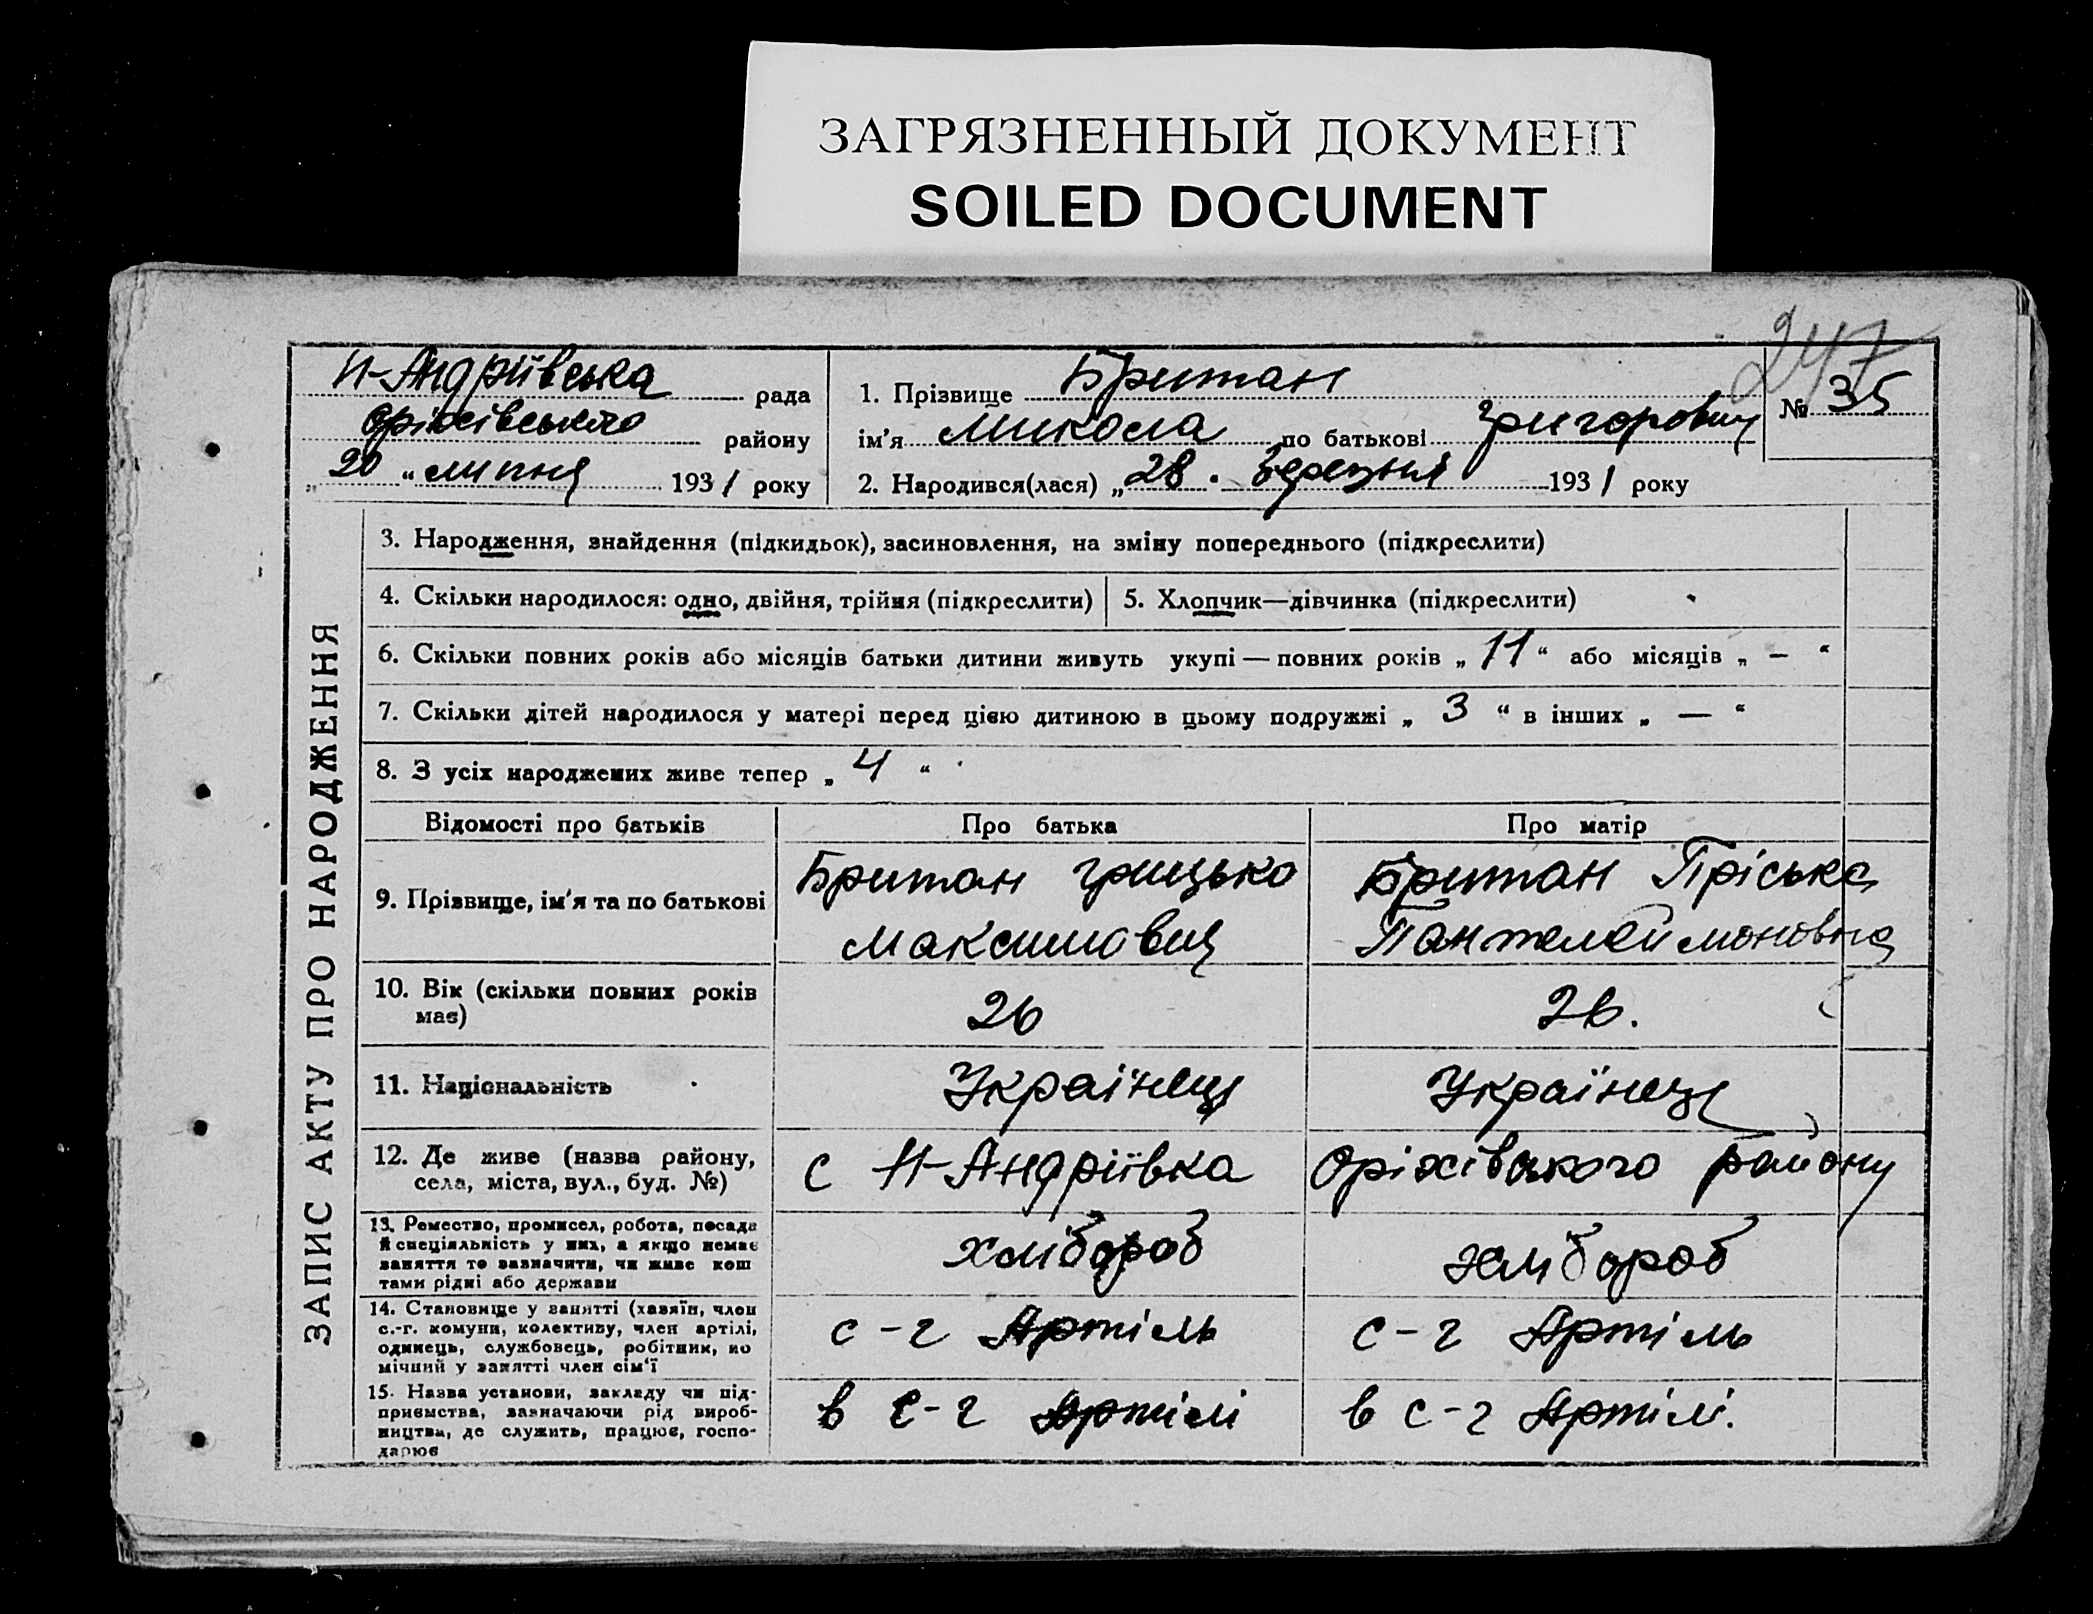 ЗАГРЯЗНЕННЫЙ ДОКУМЕНТ
SOILED DOCUMENT
247
Н-Андріївська рада
Оріхівського району
„20“ липня 1931 року
1. Прізвище Британ
ім'я Микола по батькові Григорович
№ 35
2. Народився(лася) „28. Березня 1931 року
ЗАПИС АКТУ ПРО НАРОДЖЕННЯ
3. Народження, знайдення (підкидьок), засиновлення, на зміну попереднього (підкреслити)
4. Скільки народилося: одно, двійня, трійня (підкреслити)
5. Хлопчик—дівчинка (підкреслити)
6. Скільки повних років або місяців батьки дитини живуть укупі — повних років „ 11 “ або місяців „ — “
7. Скільки дітей народилося у матері перед цією дитиною в цьому подружжі „ 3 “ в інших „ — “
8. З усіх народжених живе тепер „ 4 “
Відомості про батьків
Про батька
Про матір
9. Прізвище, ім'я та по батькові
Британ Грицько
Максимович
Британ Пріська
Пантелеймоновна
10. Вік (скільки повних років
має)
26
26.
11. Національність
Українец
Українец
12. Де живе (назва району,
села, міста, вул., буд. №)
с Н-Андріївка
Оріхівського району
13. Ремество, промисел, робота, посада
й спеціяльність у них, а якщо немає
заняття то зазначити, чи живе кош
тами рідні або держави
хлібороб
хлібороб
14. Становище у занятті (хазяїн, член
с.-г. комуни, колективу, член артілі,
одинець, службовець, робітник, по
мічний у занятті член сім'ї
с-г Артіль
с-г Артіль
15. Назва установи, закладу чи під-
приємства, зазначаючи рід вироб-
ництва, де служить, працює, госпо-
дарює
в с-г Артілі
в с-г Артілі.